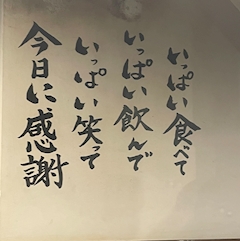 いっぱい食べて
いっぱい飲んで
いっぱい笑って
今日に、感謝